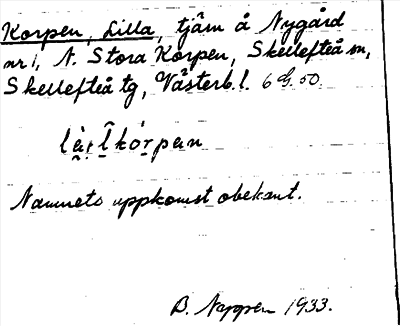 Korpen, Lilla, tjärn å Nygård
nr 1, N. Stora Korpen, Skellefteå sn,
Skellefteå tg, Västerb. l. 6 G. 50.
Namnets uppkomst obekant.
B. 1933.